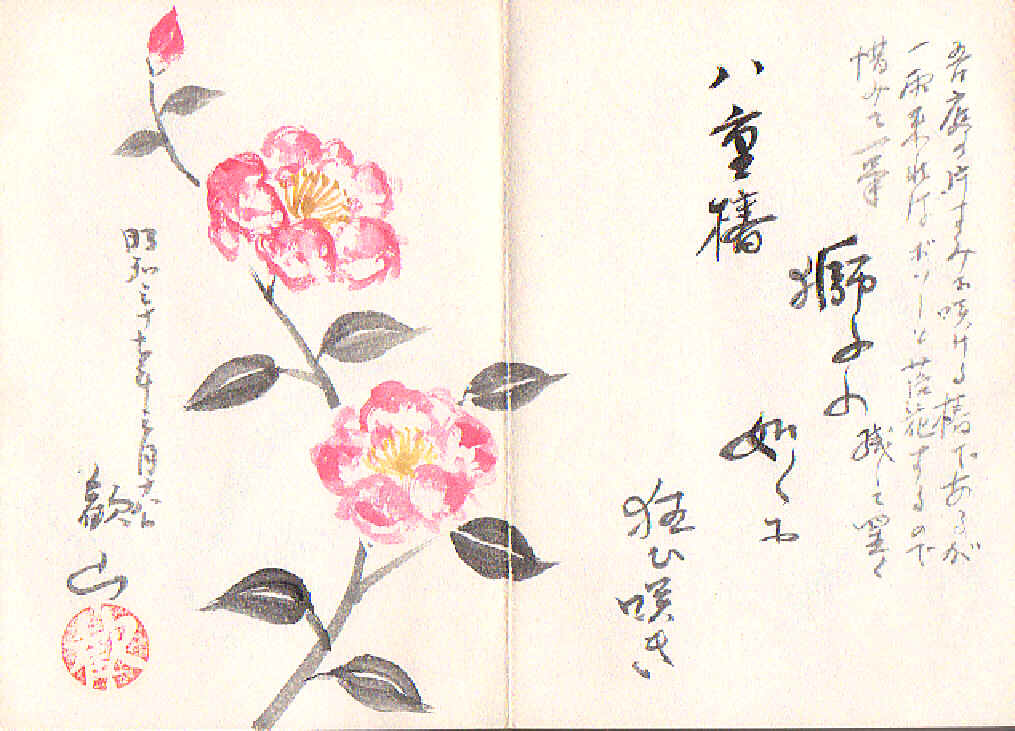 吾庭の片すみに咲ける椿であるが
一雨来ればと落花するので
惜みて一筆 残して置く
八重椿
獅子の
如くに
狂ひ咲き
昭和三十年三月
歓山